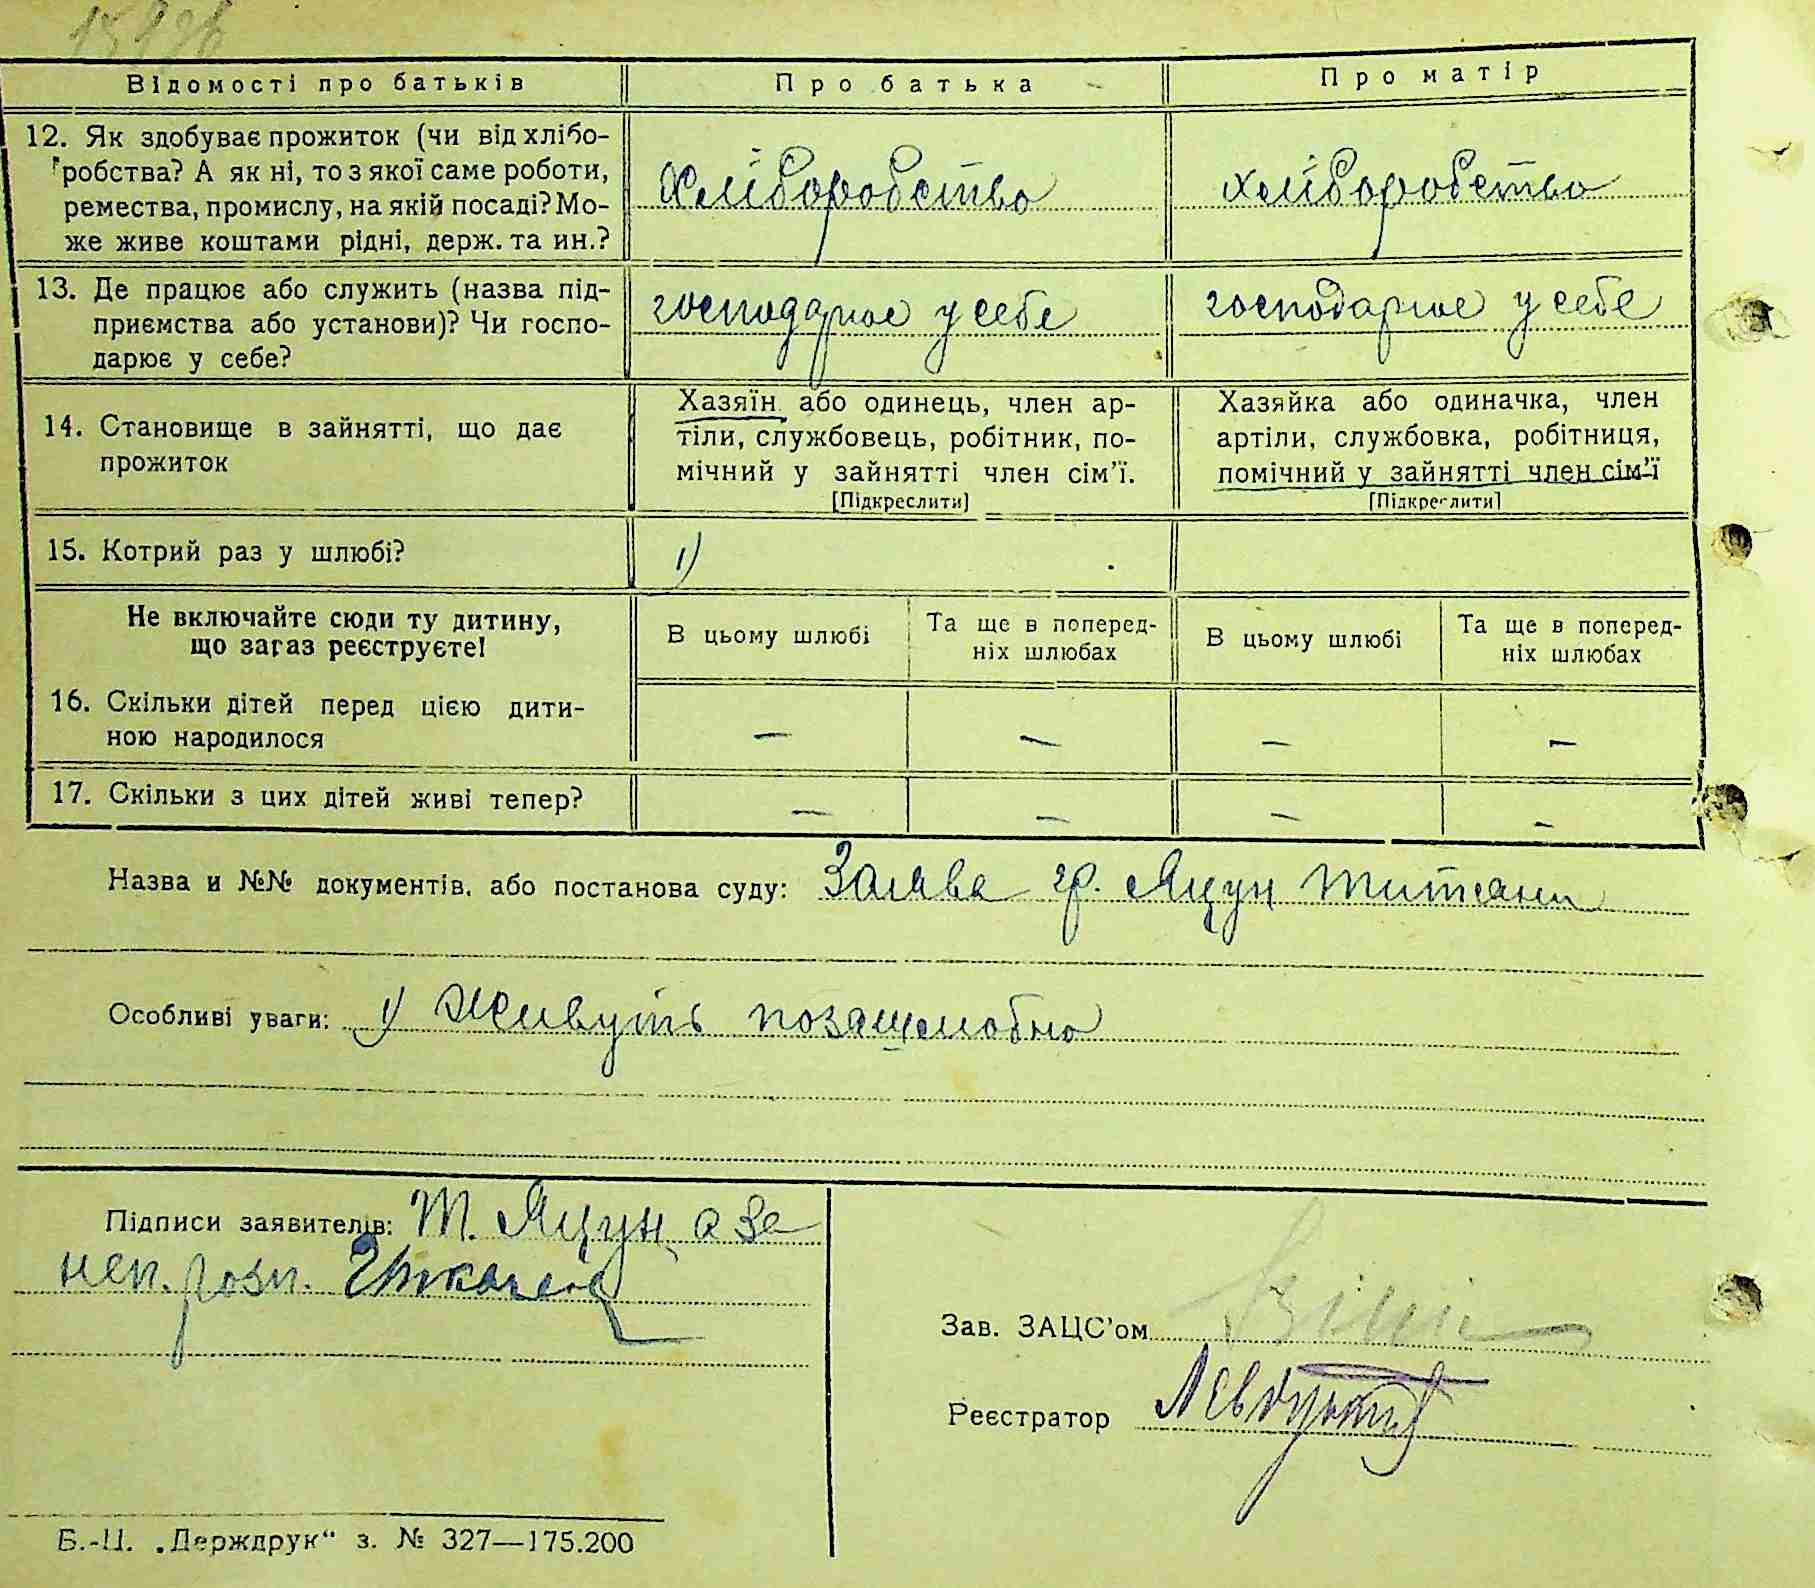 Відомості про батьків Про батька Про матір
12. Як здобуває прожиток (чи від хлібо-
робства? А як ні, то з якої саме роботи,
ремества, промислу, на якій посаді? Мо-
же живе коштами рідні, держ. та ин.?
хліборобство хліборобство
13. Де працює або служить (назва під-
приємства або установи)? Чи госпо-
дарює у себе?
господарює у себе господарює у себе
14. Становище в зайнятті, що дає
прожиток
Хазяїн або одинець, член ар-
тіли, службовець, робітник, по-
мічний у зайнятті член сім'ї.
[Підкреслити]
Хазяйка або одиначка, член
артіли, службовка, робітниця,
помічний у зайнятті член сім'ї
[Підкреслити]
15. Котрий раз у шлюбі? 1)
Не включайте сюди ту дитину,
що зараз реєструєте!
В цьому шлюбі
Та ще в поперед-
ніх шлюбах
В цьому шлюбі
Та ще в поперед-
ніх шлюбах
16. Скільки дітей перед цією дити-
ною народилося
— — — —
17. Скільки з цих дітей живі тепер?
— — — —
Назва и №№ документів, або постанова суду: Заява гр. Яцун
Особливі уваги: 1) Живуть позашлюбно
Підписи заявителів: Т. Яцун, а за
неп. розп.
Зав. ЗАЦС'ом
Реєстратор
Б.-Ц. „Держдрук“ з. № 327—175.200